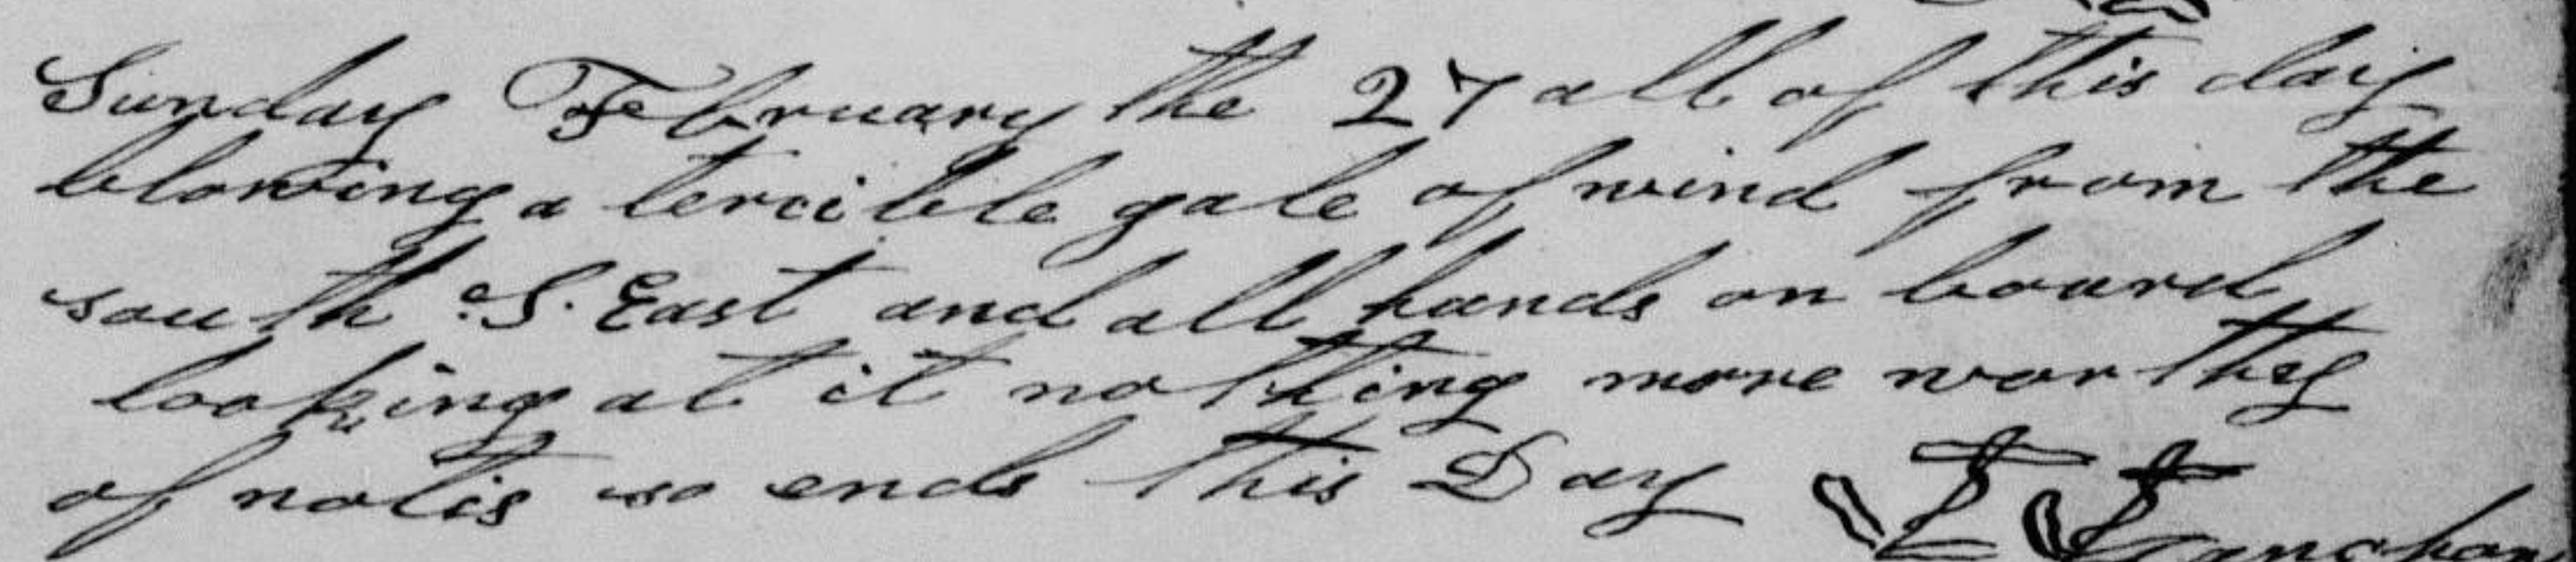 Sunday February the 27 all of this day
blowing a terrible gale of wind from the
south S. East and all hands on board
looking at it nothing more worthy
of notis so ends this Day